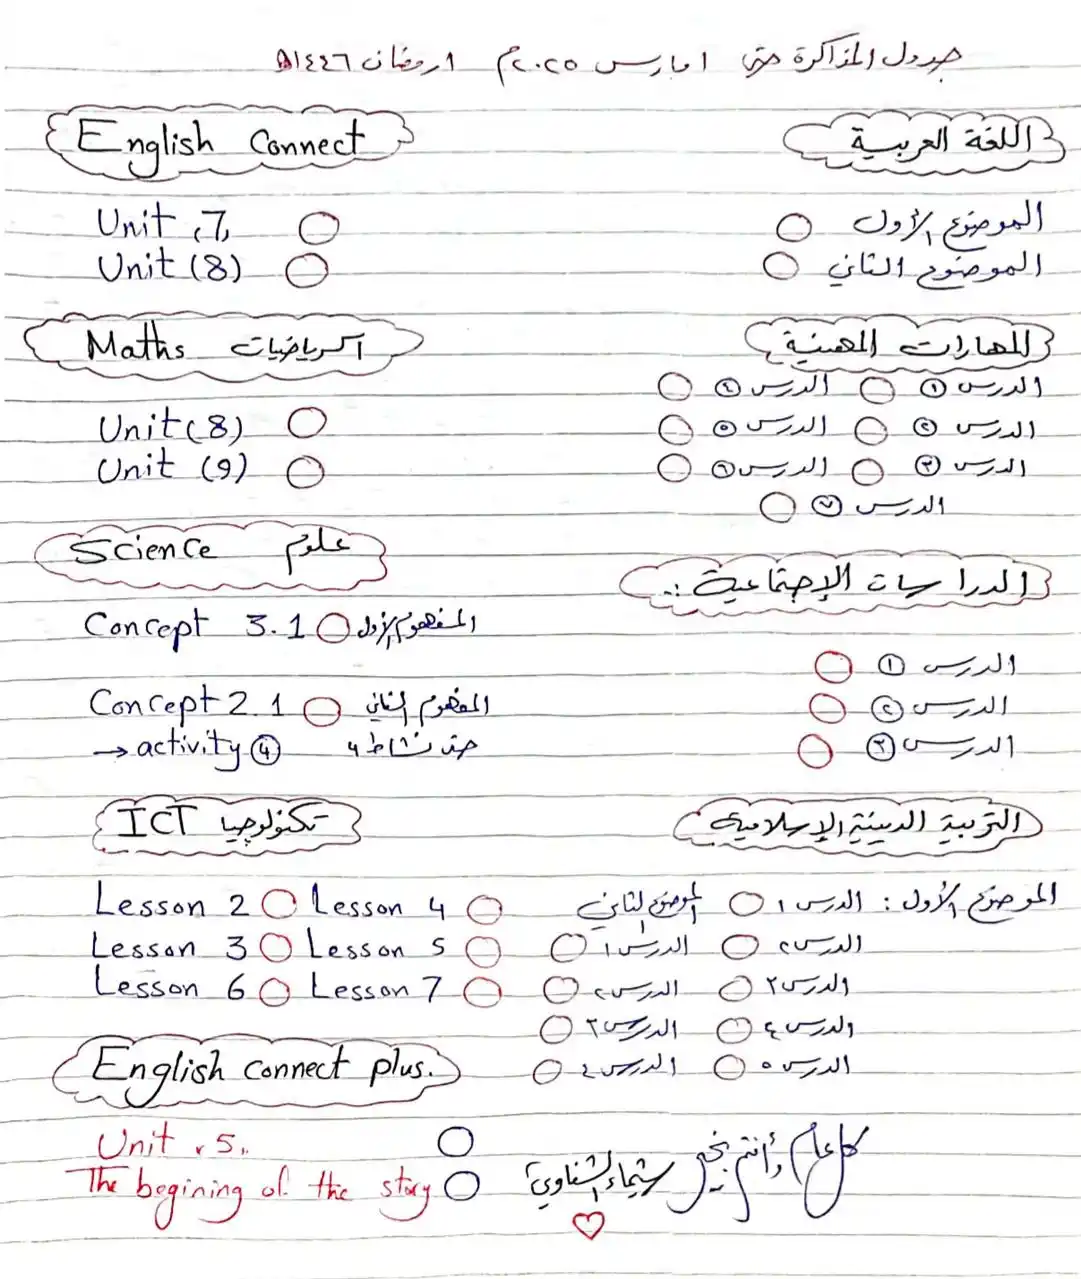 جدول المذاكرة حتى ١ مارس ٢٠٢٥م ١ رمضان ١٤٤٦ه
اللغة العربية
الموضوع الأول
الموضوع الثاني
المهارات المهنية
الدرس ١ الدرس ٤
الدرس ٢ الدرس ٥
الدرس ٣ الدرس ٦
الدرس ٧
الدراسات الإجتماعية :.
الدرس ١
الدرس ٢
الدرس ٣
التربية الدينية الإسلامية
الموضوع الأول : الدرس ١ الموضوع الثاني
الدرس ٢ الدرس ١
الدرس ٣ الدرس ٢
الدرس ٤ الدرس ٣
الدرس ٥ الدرس ٤
كل عام وأنتم بخير
شيماء الشناوي
English Connect
Unit (7)
Unit (8)
Maths الرياضيات
Unit (8)
Unit (9)
Science علوم
Concept 3.1 المفهوم الأول
Concept 2.1 المفهوم الثاني
→ activity 4 حتى نشاط ٤
ICT تكنولوجيا
Lesson 2 Lesson 4
Lesson 3 Lesson 5
Lesson 6 Lesson 7
English connect plus.
Unit (5).
The begining of the story